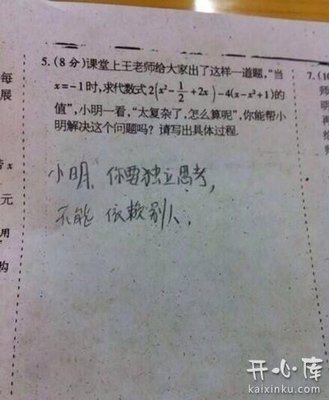 5.(8分)课堂上王老师给大家出了这样一道题,"当
x=-1时,求代数式 2(x²-1/2+2x)-4(x-x²+1)的
值",小明一看,"太复杂了,怎么算呢",你能帮小
明解决这个问题吗?请写出具体过程.
小明,你要独立思考,
不能依赖别人.
每
展
x
元
用
构
7.(10
师
开心库
kaixinku.com